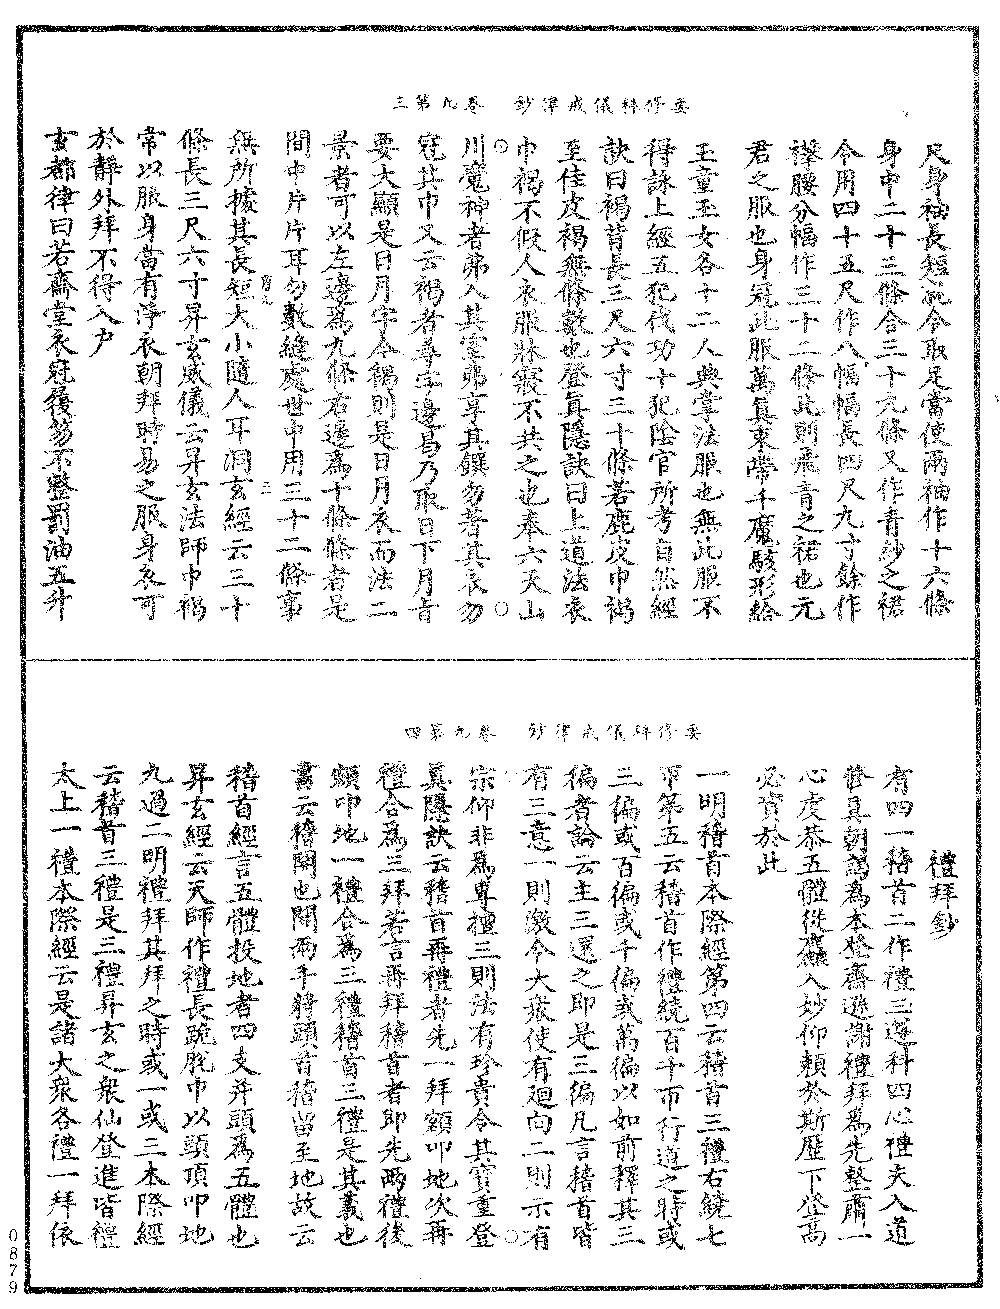 要修科儀戒律鈔　卷九第三
尺身袖長短就令取足當使兩袖作十六條
身中二十三條合三十九條又作青紗之裙
令用四十五尺作八幅幅長四尺九寸餘作
襻腰分幅作三十二條此則飛青之裙也元
君之服也身冠此服萬真束帶千魔駭形給
玉童玉女各十二人典掌法服也無此服不
得詠上經五犯伐功十犯陰官所考自然經
訣曰褐背長三尺六寸三十條若鹿皮巾褐
至佳皮褐無條數也登真隱訣曰上道法衣
巾褐不假人衣服牀寢不共之也奉六天山
川魔神者弗入其室弗享其饌勿著其衣勿
冠其巾又云褐者尋字邊曷乃取日下月音
要大顯是日月字今褐則是日月衣而法二
景者可以左邊為九條右邊為十條條者是
間中片片耳勿數縫處世中用三十二條事
無所據其長短大小隨人耳洞玄經云三十
條長三尺六寸昇玄威儀云昇玄法師巾褐
常以服身當有淨衣朝拜時易之服身衣可
於靜外拜不得入户
玄都律曰若齋堂衣冠履笏不整罰油五升
要修科儀戒律鈔　卷九第四
禮拜鈔
有四一稽首二作禮三遜科四心禮夫入道
登真朝謁為本登齋遜謝禮拜為先整肅一
心虔恭五體從麤入妙仰賴於斯歷下登高
必資於此
一明稽首本際經第四云稽首三禮右繞七
帀第五云稽首作禮繞百千帀行道之時或
三徧或百徧或千徧或萬徧以如前釋其三
徧者論云主三遷之即是三徧凡言稽首皆
有三意一則激令大衆使有廻向二則示有
宗仰非為專擅三則法有珍貴令其寶重登
真隱訣云稽首再禮者先一拜額叩地次再
禮合為三拜若言再拜稽首者即先兩禮後
額叩地一禮合為三禮稽首三禮是其義也
書云稽開也開兩手將頭首稽留至地故云
稽首經言五體投地者四支并頭為五體也
昇玄經云天師作禮長跪脫巾以頭頂叩地
九過二明禮拜其拜之時或一或三本際經
云稽首三禮是三禮昇玄之衆仙登進皆禮
太上一禮本際經云是諸大衆各禮一拜依
0879